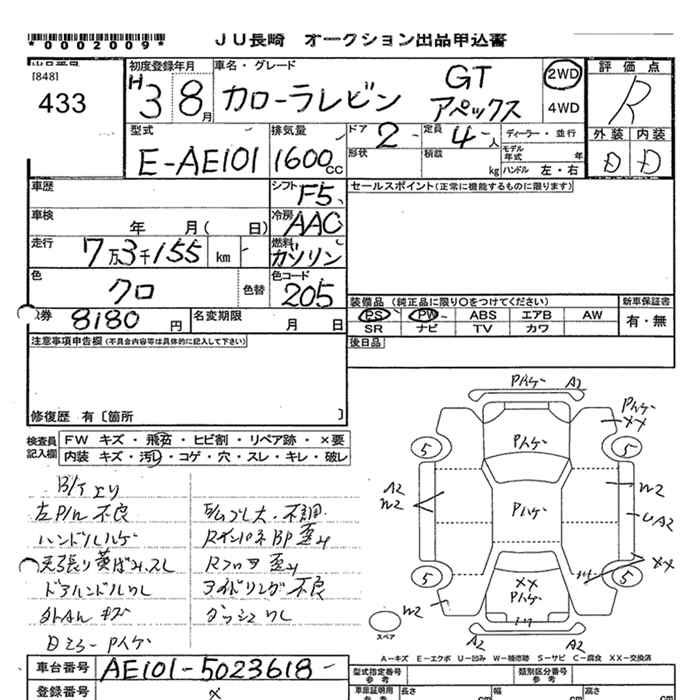 *0002009*
JU長崎 オークション出品申込書
[848]
433
初度登録年月
H3 8月
車名・グレード
カローラレビン GT アペックス
2WD
4WD
評価点
R
外装 内装
D D
型式
E-AE101
排気量
1600cc
ドア
2
定員
4人
形状
積載
kg
ディーラー・並行
モデル年式 年
ハンドル 左・右
車歴
シフト
F5
セールスポイント(正常に機能するものに限ります)
車検
年 月( 日)
冷房
AAC
走行
7万3千155 km
燃料
ガソリン
色
クロ
色替
色コード
205
装備品 (純正品に限り○をつけてください)
新車保証書
PS PW ABS エアB AW
SR ナビ TV カワ
有・無
券 8180円
名変期限
月 日
注意事項申告欄(不具合内容等は具体的に記入して下さい)
後日品
修復歴 有〔箇所 〕
検査員記入欄
FW キズ・飛石・ヒビ割・リペア跡・×要
内装 キズ・汚レ・コゲ・穴・スレ・キレ・破レ
左P/W 不良
ハンドルハゲ
天張り黄ばみ、スレ
外AN キズ
Dミラー Pハゲ
Rインパネ BP 歪み
Rフロア 歪み
アイドリング不良
Pハゲ A2
Pハゲ
XX
5
5
Pハゲ
A2
W2
Pハゲ
W2
UA2
XX
5
5
XX
Pハゲ
W2
A2
A2
スペア
A-キズ E-エクボ U-凹み W-補修跡 S-サビ C-腐食 XX-交換済
車台番号
AE101-5023618
登録番号
×
型式指定番号
参考
類別区分番号
参考
車庫証明用
参考
長さ
cm
幅
cm
高さ
cm